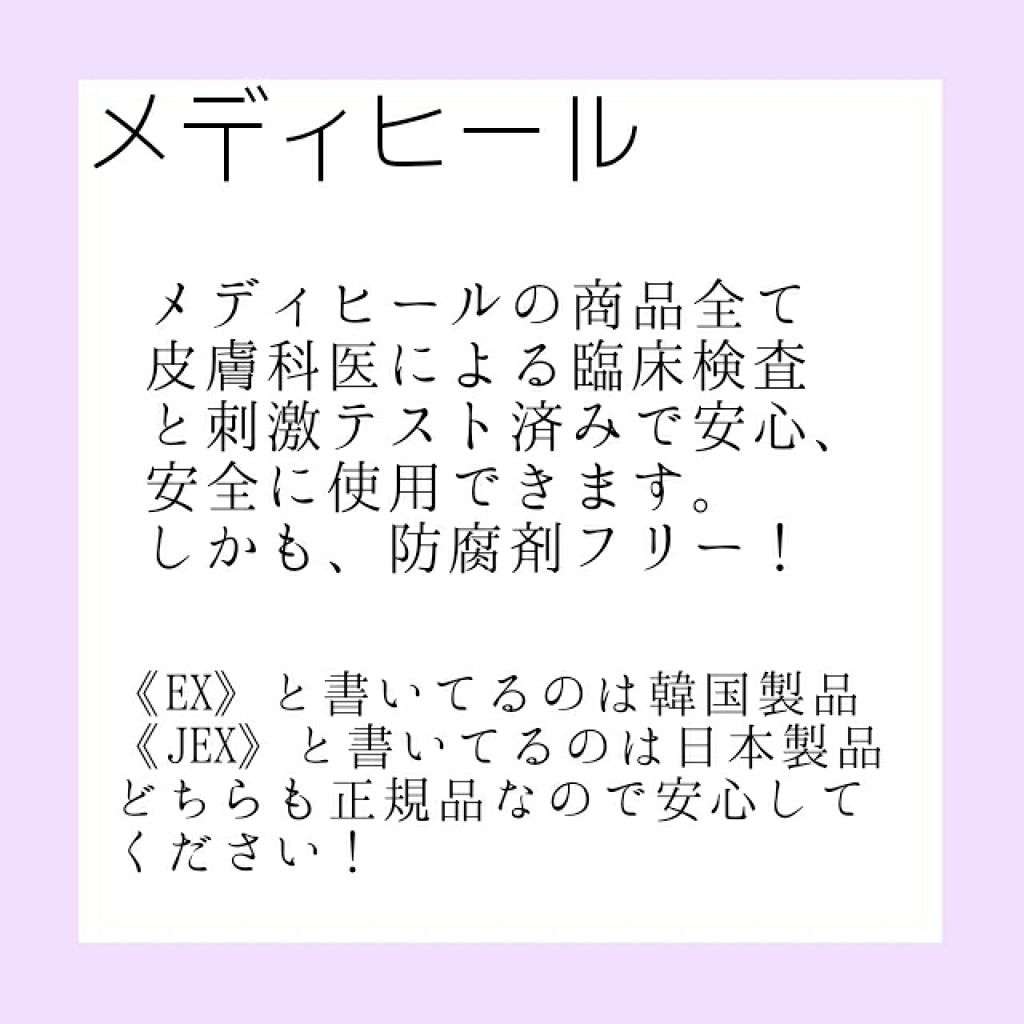 メディヒール
メディヒールの商品全て
皮膚科医による臨床検査
と刺激テスト済みで安心、
安全に使用できます。
しかも、防腐剤フリー！
《EX》と書いてるのは韓国製品
《JEX》と書いてるのは日本製品
どちらも正規品なので安心して
ください！